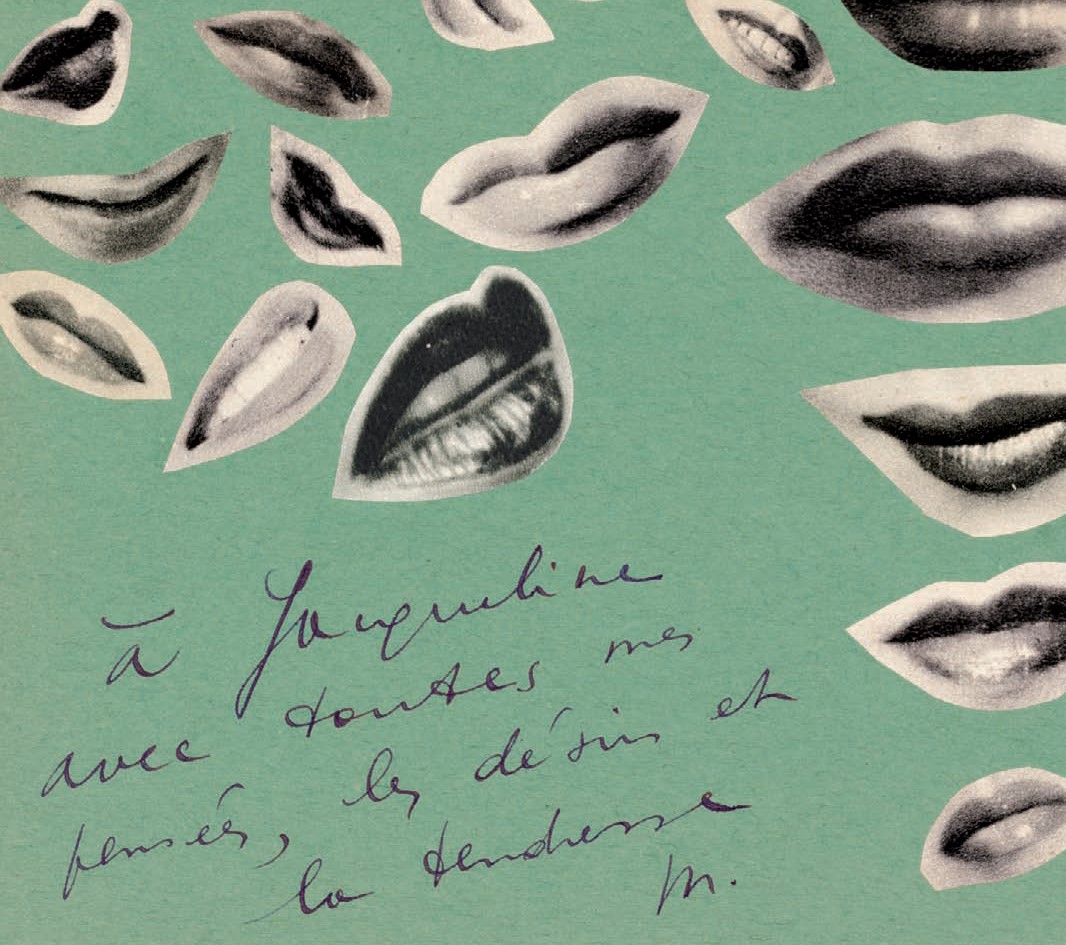 à Jacqueline
avec toutes mes
pensées, les désirs et
la tendresse
M.